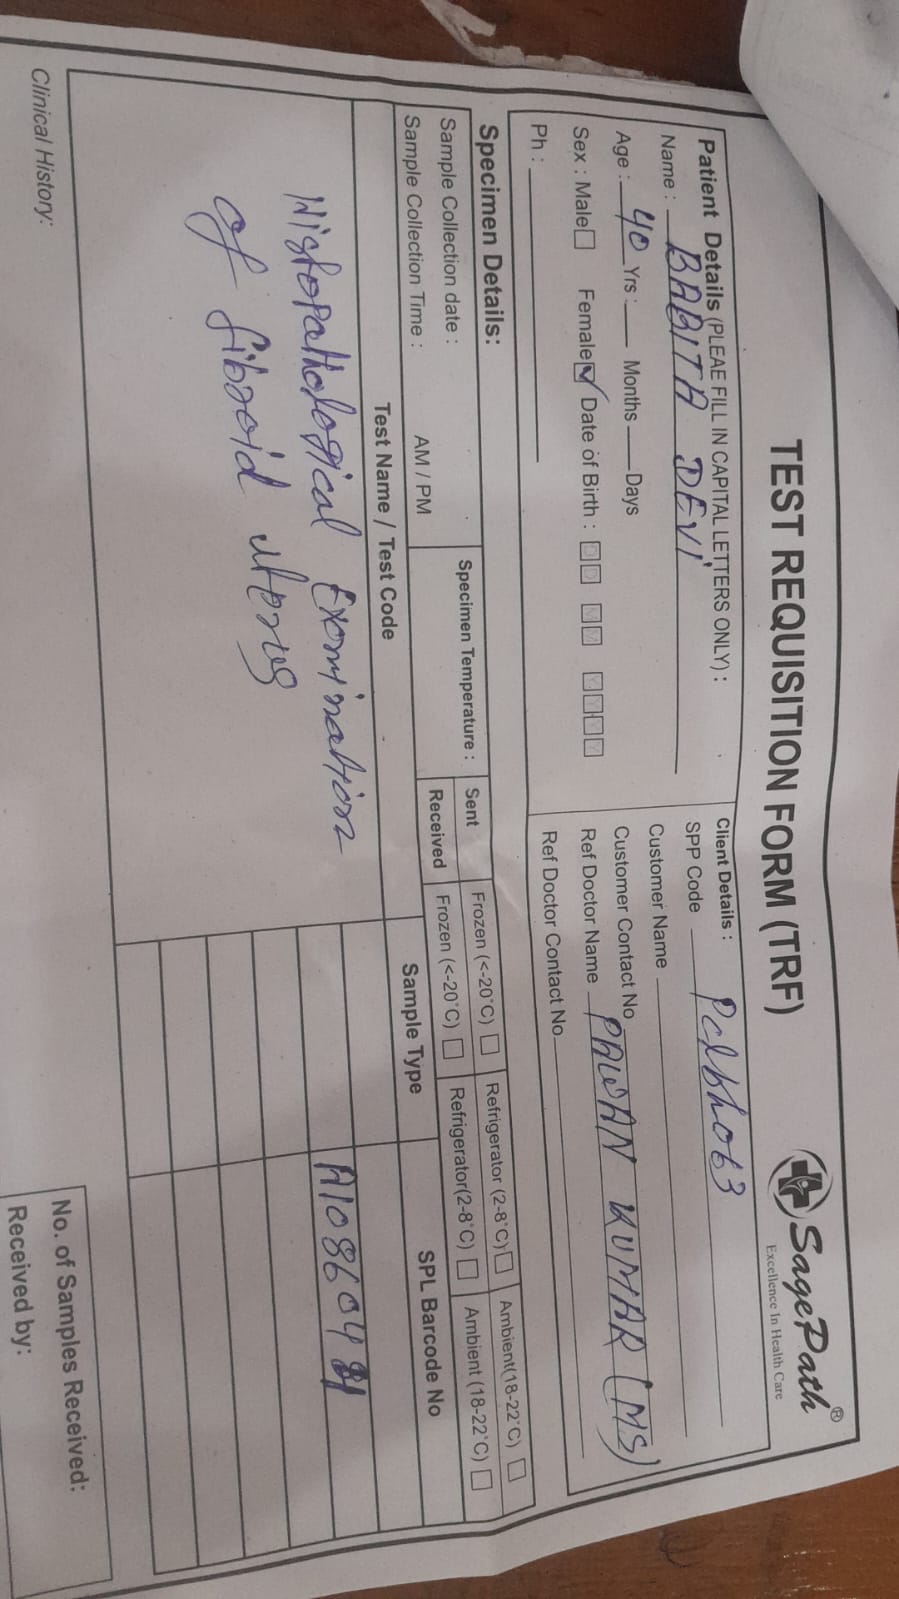 TEST REQUISITION FORM (TRF)
SagePath®
Excellence In Health Care
Patient Details (PLEAE FILL IN CAPITAL LETTERS ONLY) :
Name : BABITA DEVI
Age : 40 Yrs : Months Days
Sex : Male Female ✓ Date of Birth : D D M M Y Y Y Y
Ph :
Client Details :
SPP Code
Customer Name
Customer Contact No
Ref Doctor Name PAWAN KUMAR (MS)
Ref Doctor Contact No.
Specimen Details:
Sample Collection date :
Sample Collection Time : AM / PM
Specimen Temperature :
Sent Frozen (<-20°C) Refrigerator (2-8°C) Ambient(18-22°C)
Received Frozen (<-20°C) Refrigerator(2-8°C) Ambient (18-22°C)
Test Name / Test Code Sample Type SPL Barcode No
Histopathological Examination
of fibroid uterus
Clinical History:
No. of Samples Received:
Received by: